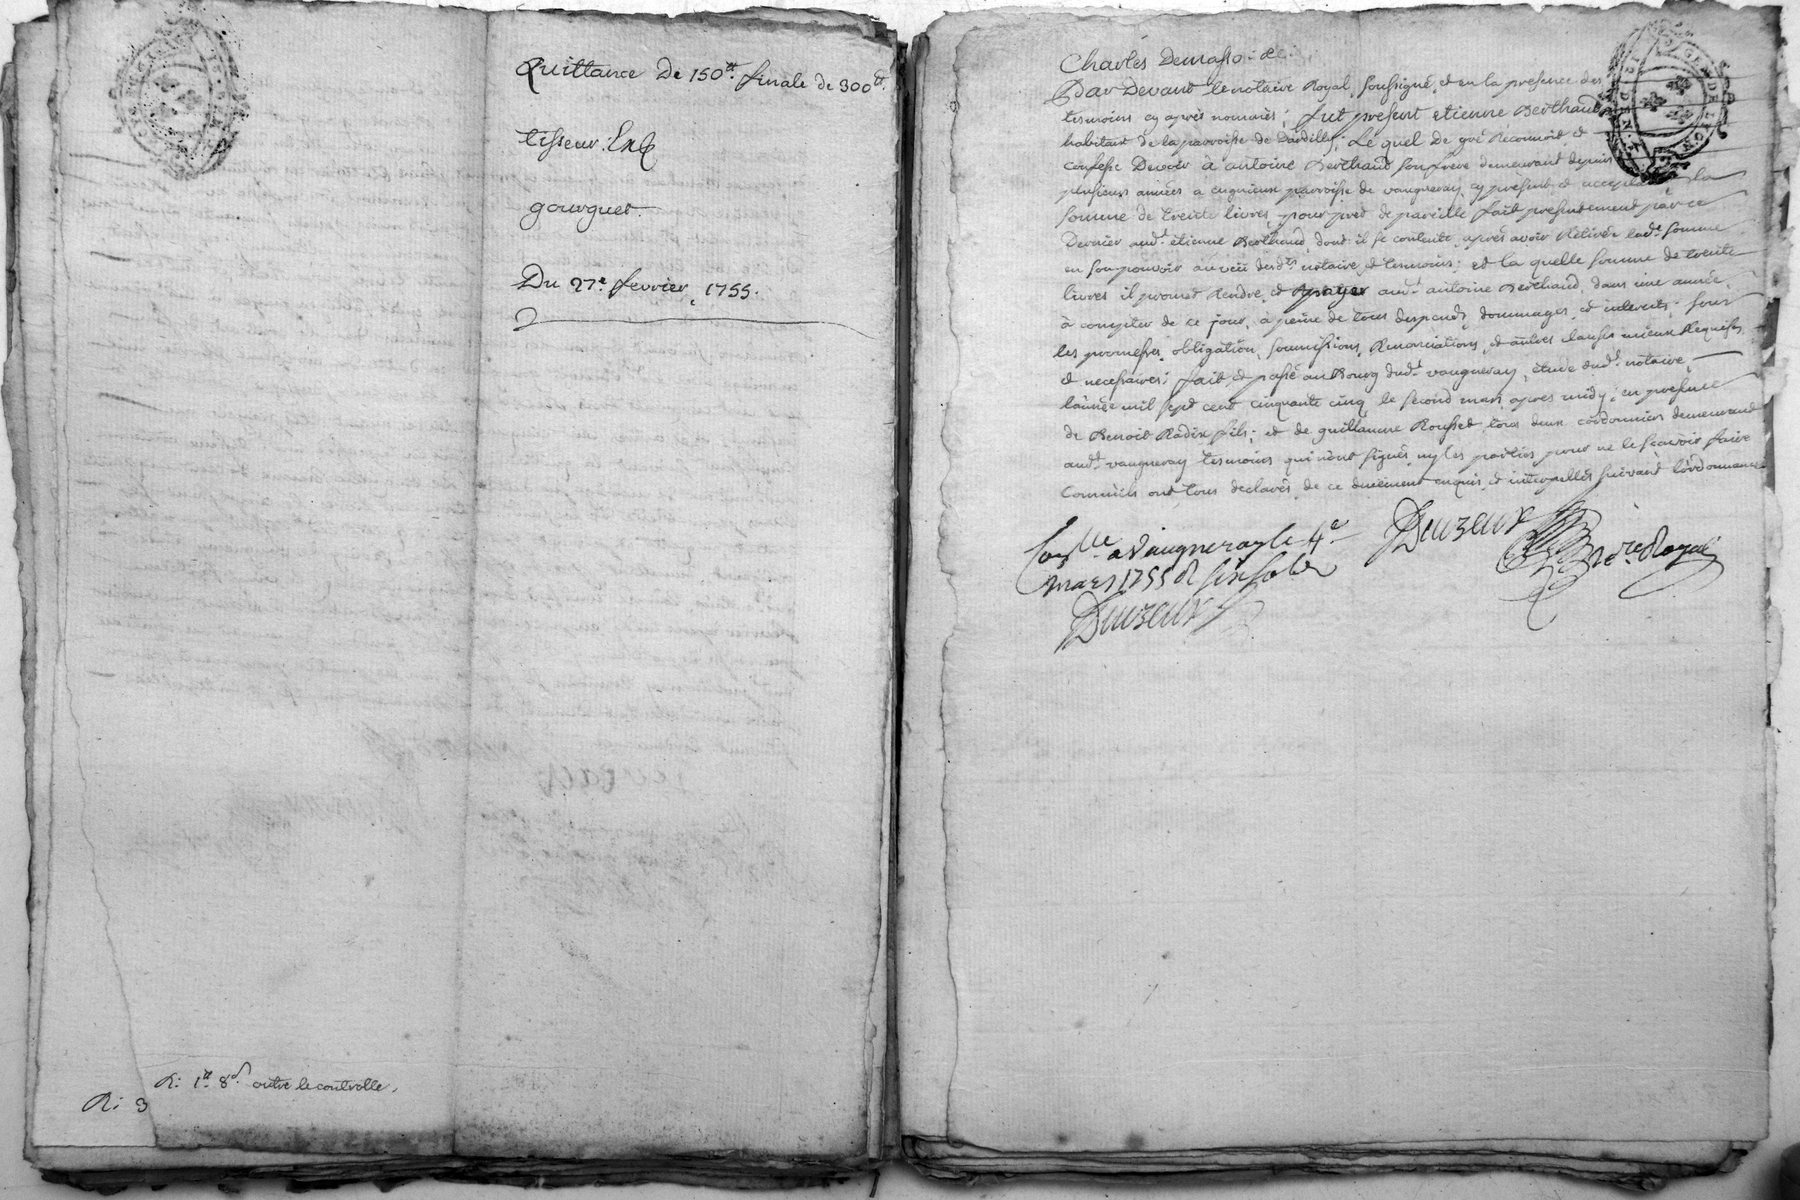 Quittance De 150ᵗᵗ finale de 300ᵗᵗ.
tisseur.
gourguet.
Du 27ᵉ fevrier, 1755.
R: 1ᵗᵗ 8ˢ outre le controlle.
R: 3
Charles
Par Devant le notaire Royal, soussigné, et en la presence des
tesmoins cy après nommés; fut present etienne Berthaud
habitant de la parroisse de Dardilly; Lequel De gré Reconnoit, et
confesse Devoir à antoine Berthaud son frere demeurant depuis
plusieurs années a parroisse de vaugneray, cy présent et acceptant, la
somme de trente livres, pour pret de pareille fait presentement par ce
Dernier audᵗ etienne Berthaud, dont il se contente, après avoir Retirée ladᵉ somme
en son pouvoir au veü desdᵗˢ notaire, et tesmoins; et la quelle somme de trente
livres il promet Rendre, et payer audᵗ antoine Berthaud, dans une année,
à compter de ce jour, à peine de tous despends, dommages, et interets; sous
les promesses, obligation, soumissions, Renonciations, et autres clauses mieux Requises
et necessaires; fait, et passé au Bourg dudᵗ vaugneray, étude dudᵗ notaire,
l'année mil sept cent cinquante cinq, le second mars, après midy; en presence
de Benoit Radix fils; et de guillaume Rousset, tous deux cordonniers demeurant
audᵗ vaugneray tesmoins qui n'ont signés, ny les parties pour ne le sçavoir faire
Comm'ils ont tous declarés, de ce duëment enquis, et interpellés suivant l'ordonnance
Duuzeux
Nᵒʳᵉ Royal
Conᵗˡˡᵉ a Vaugneray le 4ᵉ
mars 1755 R six sols
Duuzeux